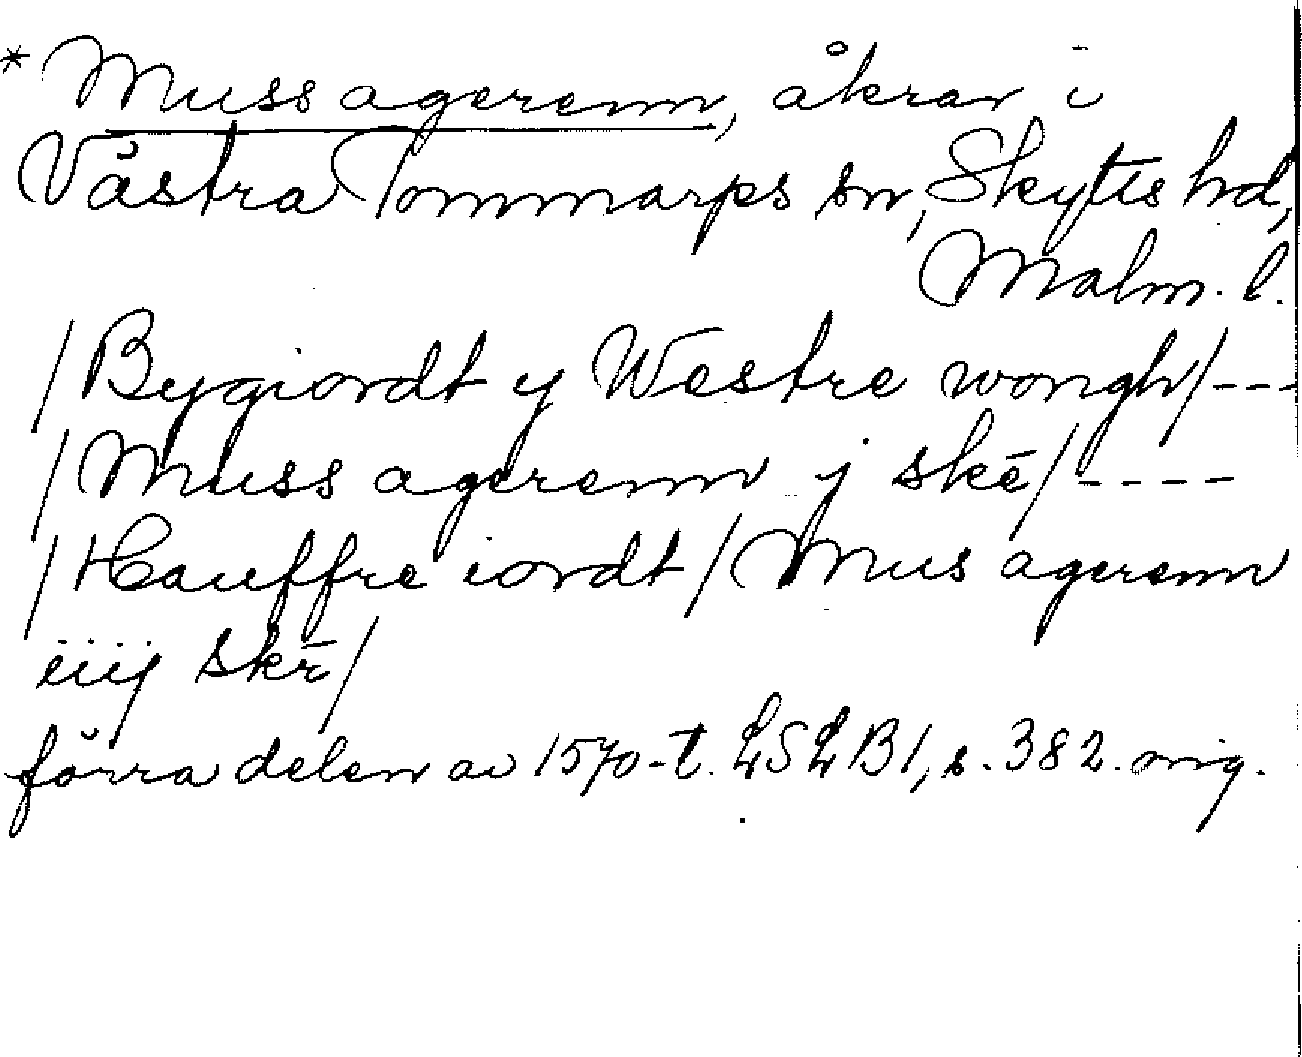 * Muss agerenn, åkrar i
Västra Tommarps sn, Skytts hd,
Malm. l.
/Bygiordt y Westre wongh/---
/Muss agerenn j skē/----
/Hauffre iordt/Mus agerenn
iiij skr̄/
förra delen av 1570-t. LSLB1, s. 382. orig.